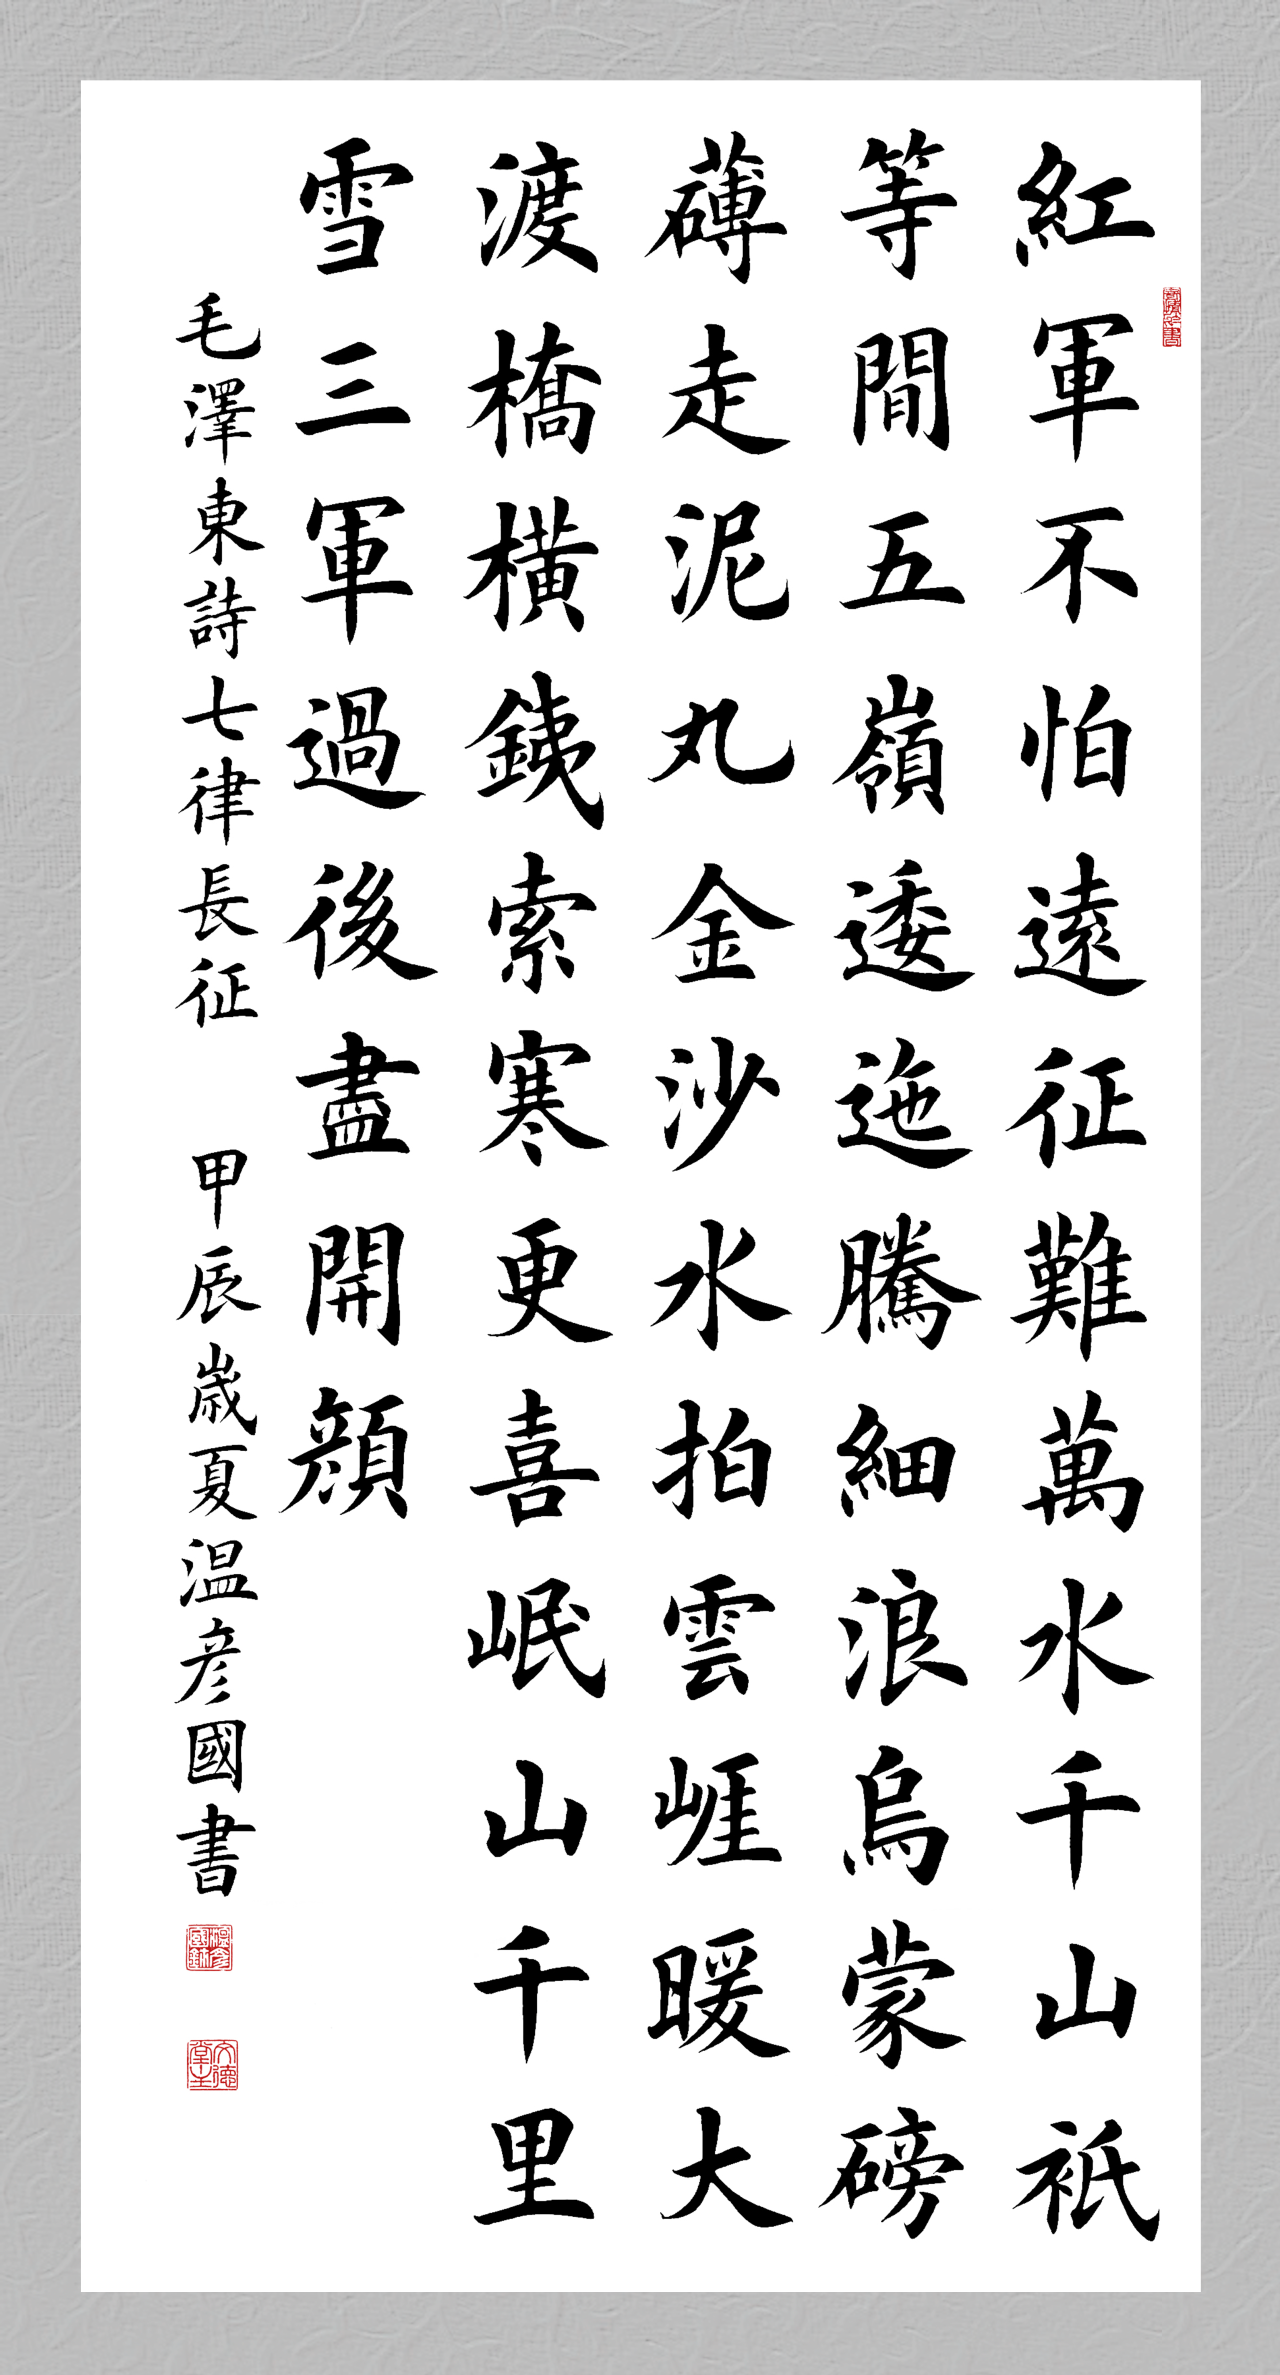 紅軍不怕遠征難萬水千山祇
等閒五嶺逶迤騰細浪烏蒙磅
礴走泥丸金沙水拍雲崕暖大
渡橋橫銕索寒更喜岷山千里
雪三軍過後盡開顔
毛澤東詩七律長征 甲辰歲夏温彦國書
文德堂主